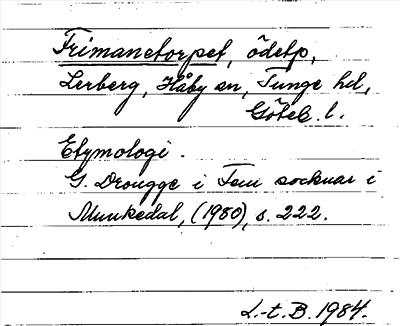 Trimanetorpet, ödetp,
Lerberg, Håby sn, Tunge hd,
Göteb. l.
Etymologi.
G. Drougge i Fem socknar i
Munkedal, (1980), s. 222.
L.-t. B. 1984.